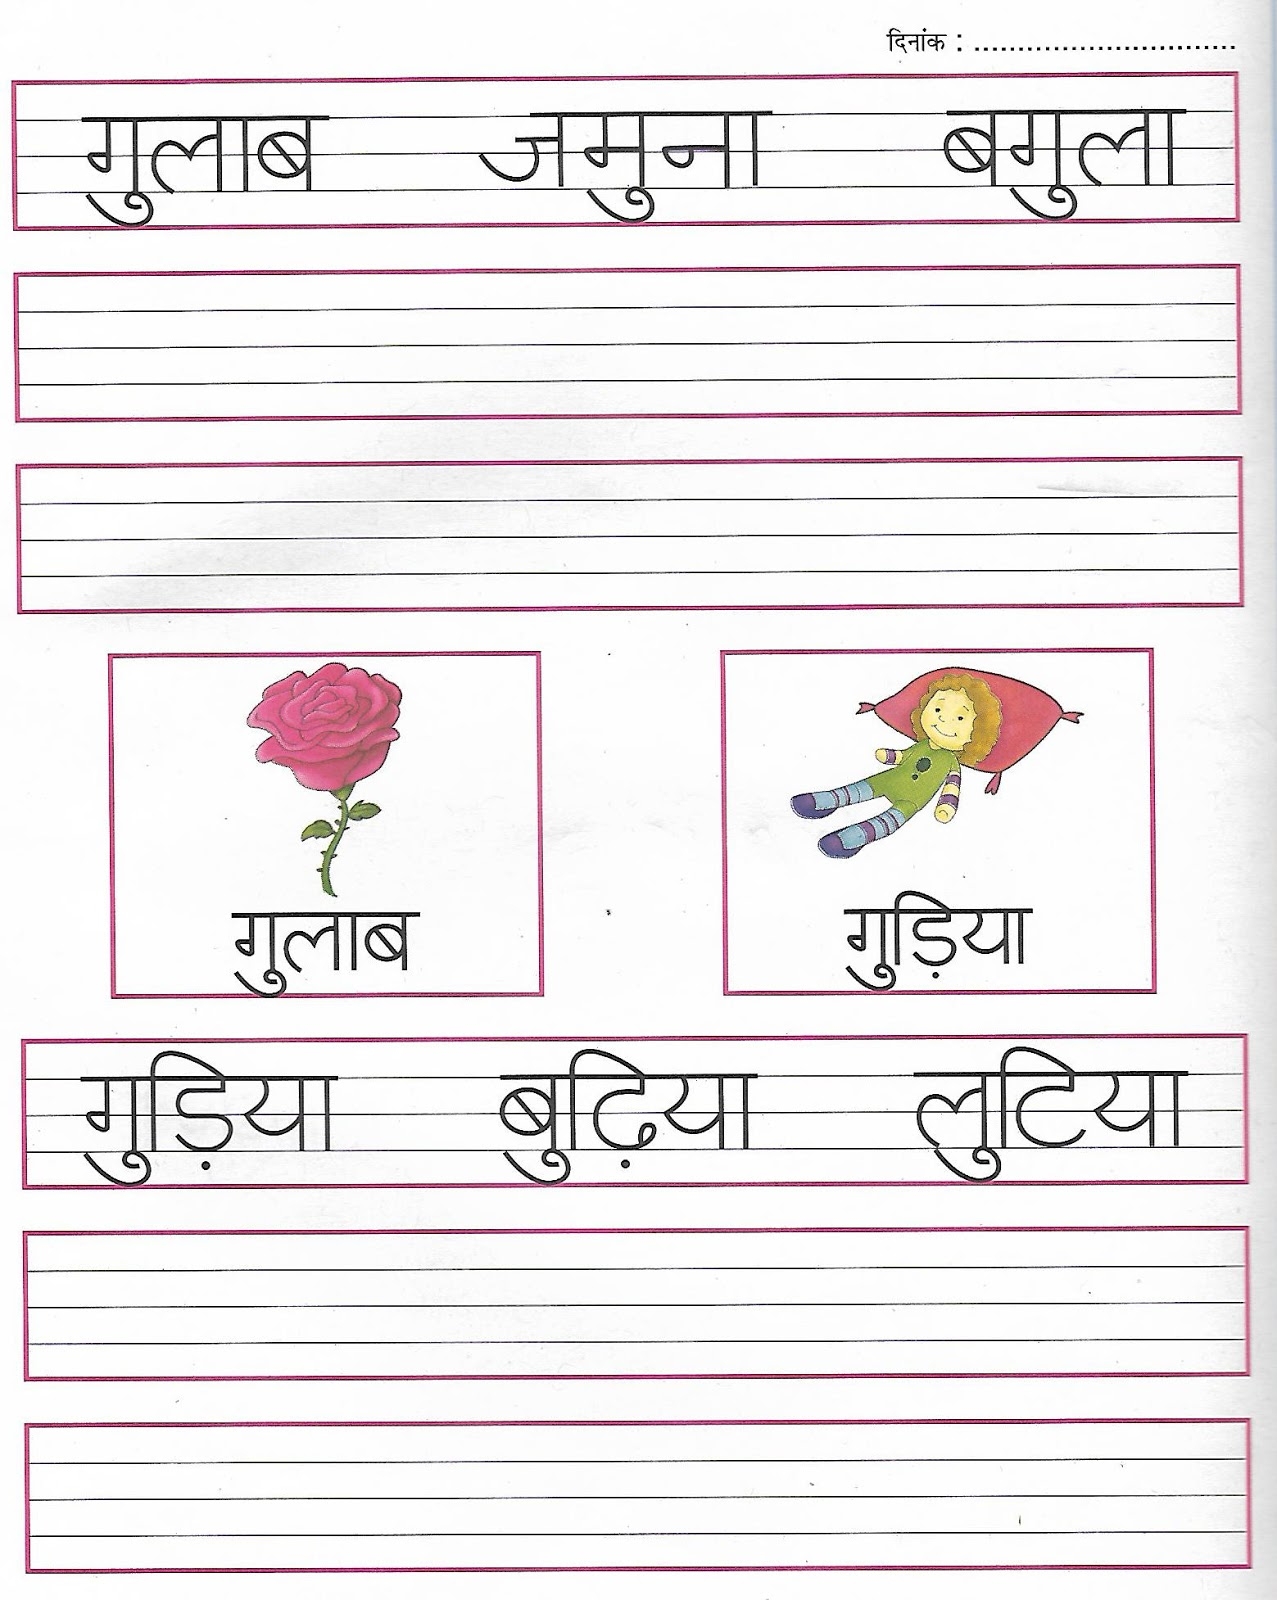 दिनांक : ..............................
गुलाब जमुना बगुला
गुलाब गुड़िया
गुड़िया बुढ़िया लुटिया